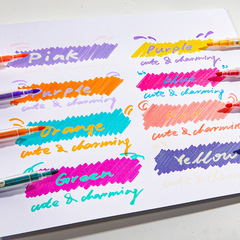 Pink
Purple
cute & charming
Orange
cute & charming
Green
cute & charming
Purple
cute & charming
Blue
cute & charming
cute & charming
Yellow